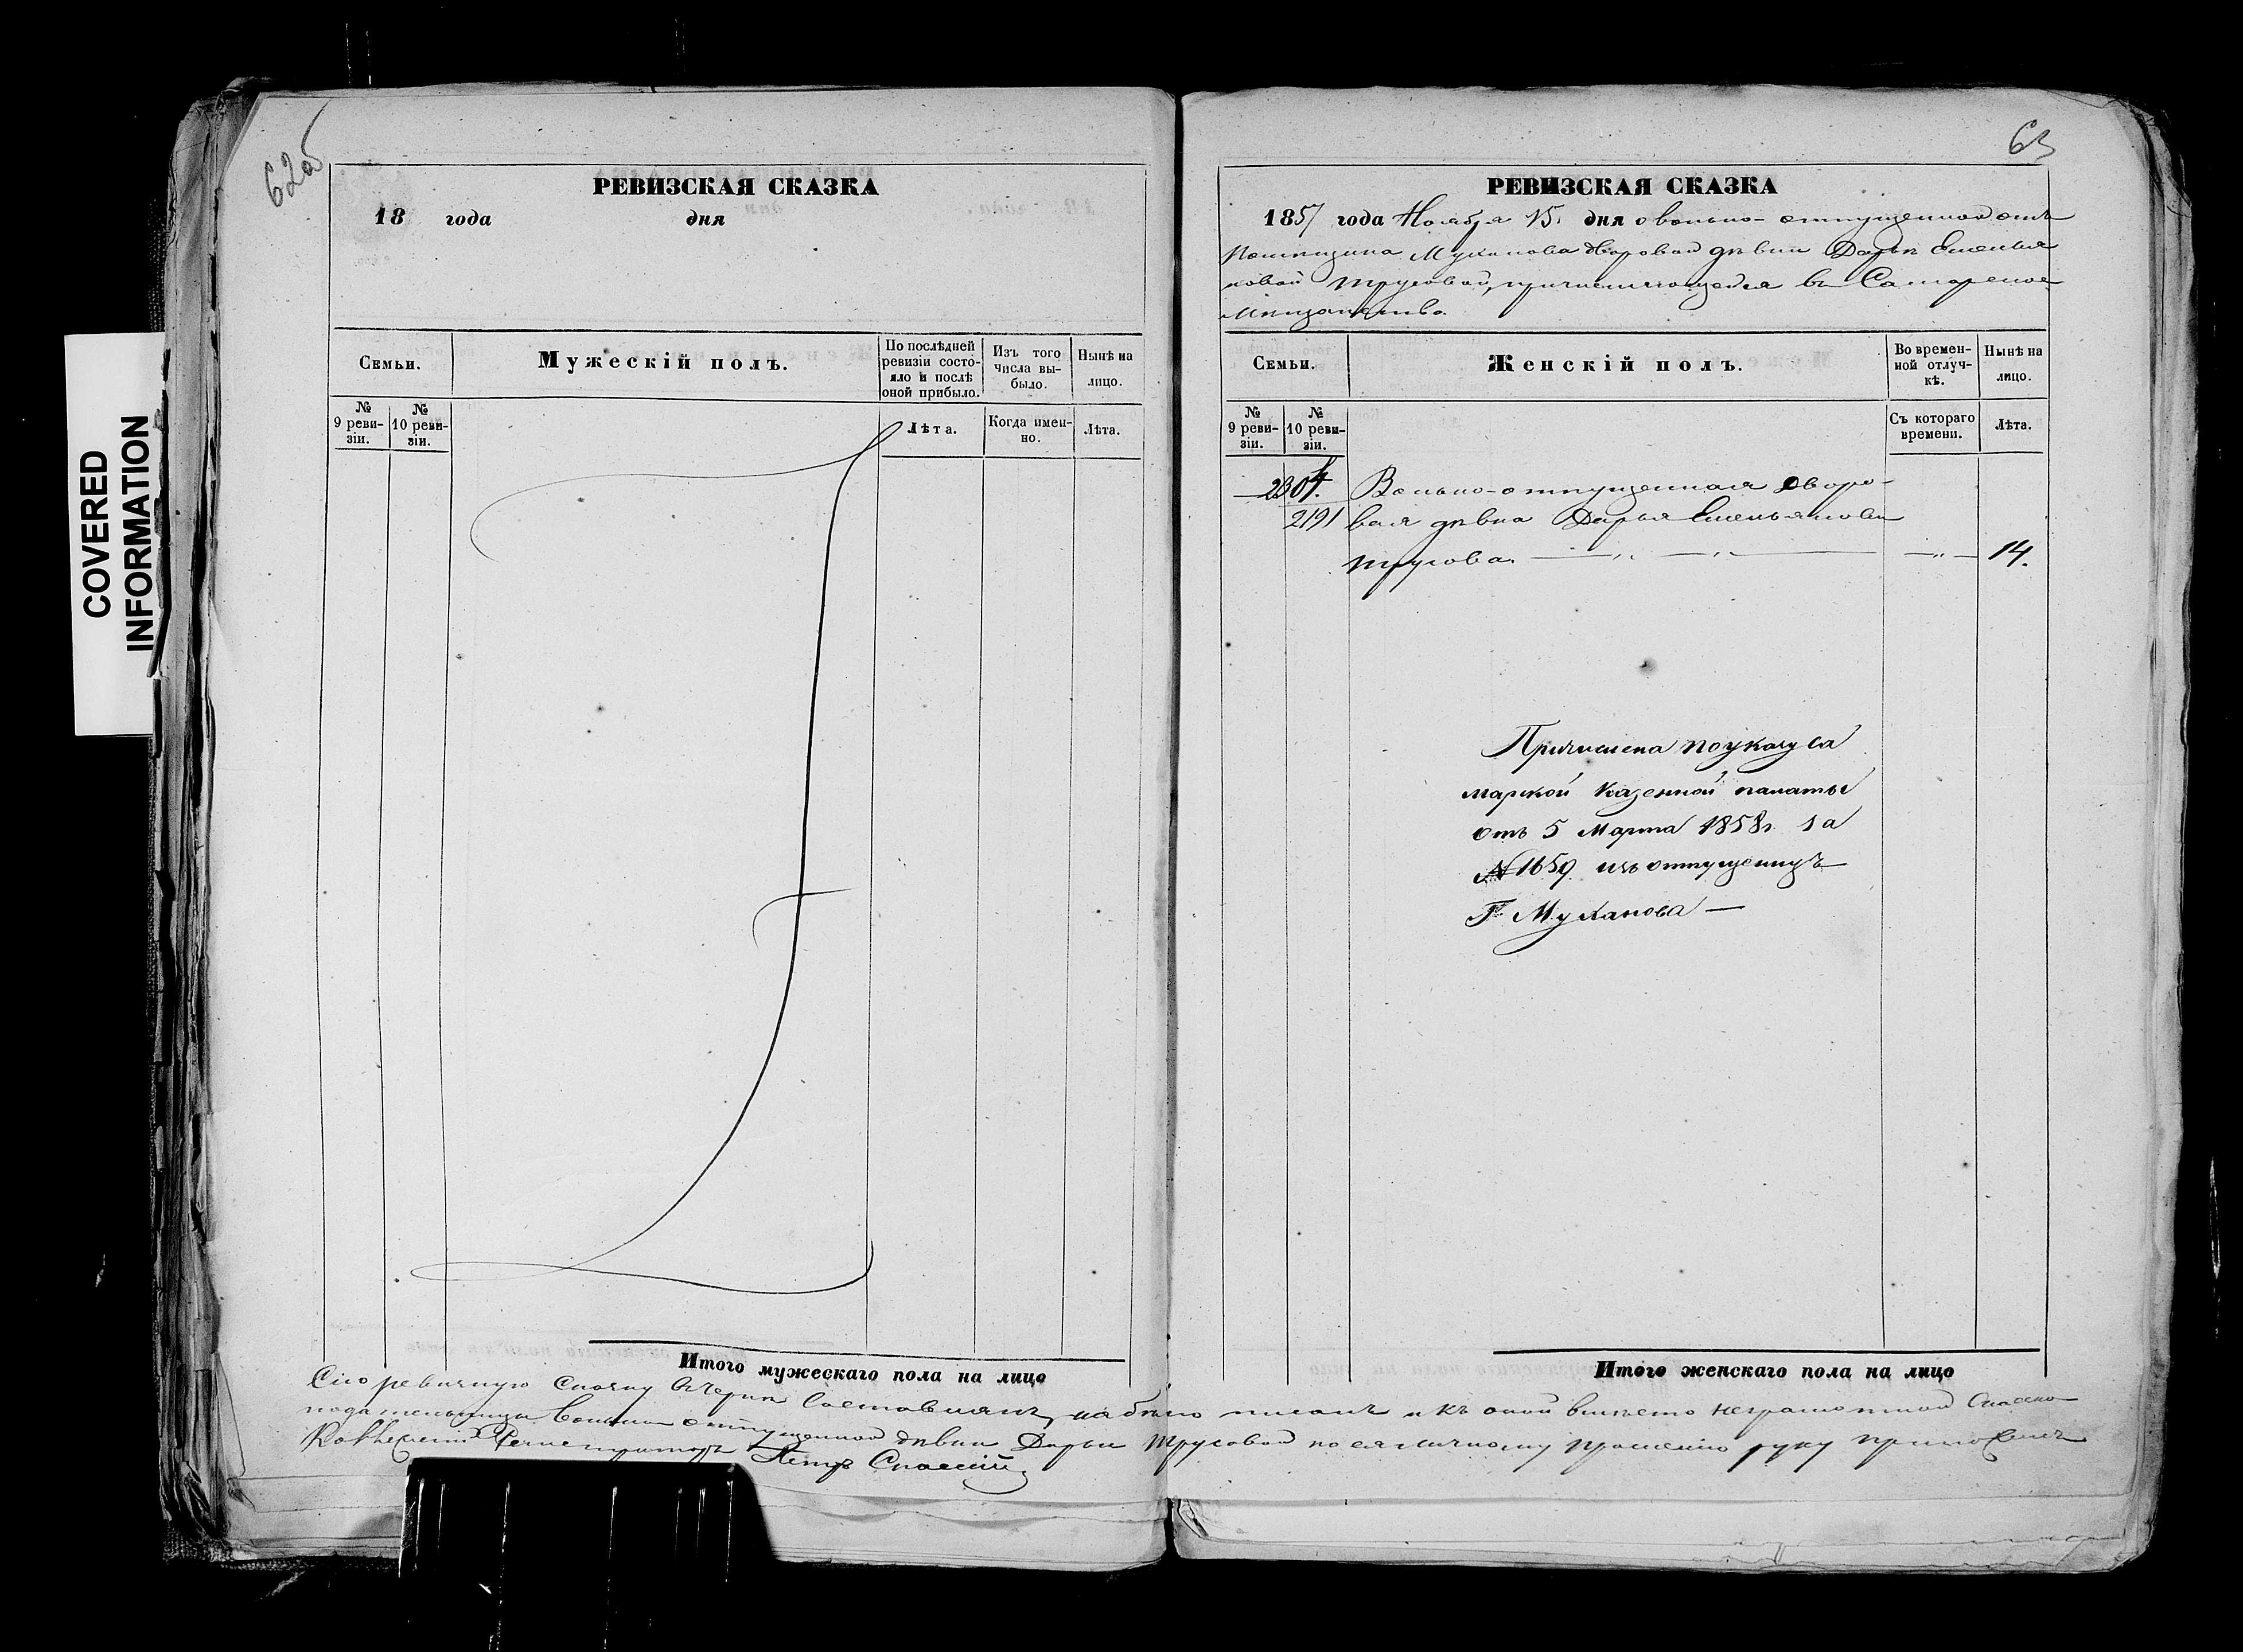 62об
РЕВИЗСКАЯ СКАЗКА
18 года дня
Семьи.
Мужескій полъ.
По послѣдней ревизіи состояло и послѣ оной прибыло.
Изъ того числа выбыло.
Нынѣ на лицо.
№ 9 ревизіи.
№ 10 ревизіи.
Лѣта.
Когда именно.
Лѣта.
Итого мужескаго пола на лицо
63
РЕВИЗСКАЯ СКАЗКА
1857 года Ноября 15 дня о вольно-отпущенной отъ
Помѣщика Муханова дворовой дѣвки Дарьѣ Емелья
новой Трусовой, причисляющейся въ Самарское
Мѣщанство.
Семьи.
Женскій полъ.
Во временной отлучкѣ.
Нынѣ на лицо.
№ 9 ревизіи.
№ 10 ревизіи.
Съ котораго времени.
Лѣта.
Вольно-отпущенная дворо-
2191 вая дѣвка Дарья Емельянова
Трусова 14.
Причислена по указу Са
марской Казенной палаты
отъ 5 Марта 1858 г. за
№ 1659 изъ отпущенныхъ
Г. Муханова —
Итого женскаго пола на лицо
Сію ревизкую Сказку вчернѣ Составлялъ, набѣло писалъ и къ оной вмѣсто неграмотной Сказко
подательницы вольно отпущенной дѣвки Дарьи Трусовой по ея личному прошенію руку приложилъ
Коллежскій Регистраторъ Петръ Спасскій